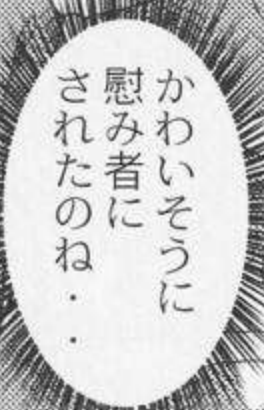 かわいそうに
慰み者に
されたのね・・